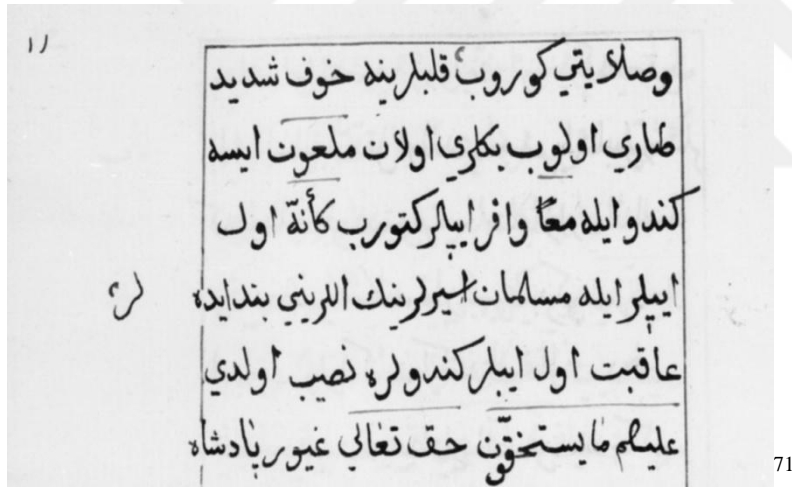 ١١
وصلايتي كوروب قلبلرينه خوف شديد
طاري اولوب بكلري اولان ملعون ايسه
كندو ايله معاً وافر ايپلر كتورب كأنّه اول
ايپلر ايله مسلمان اسيرلرينك اللريني بندايده
لر
عاقبت اول ايپلر كندولره نصيب اولدي
عليهم مايستحقّون حق تعالي غيور پادشاه
71